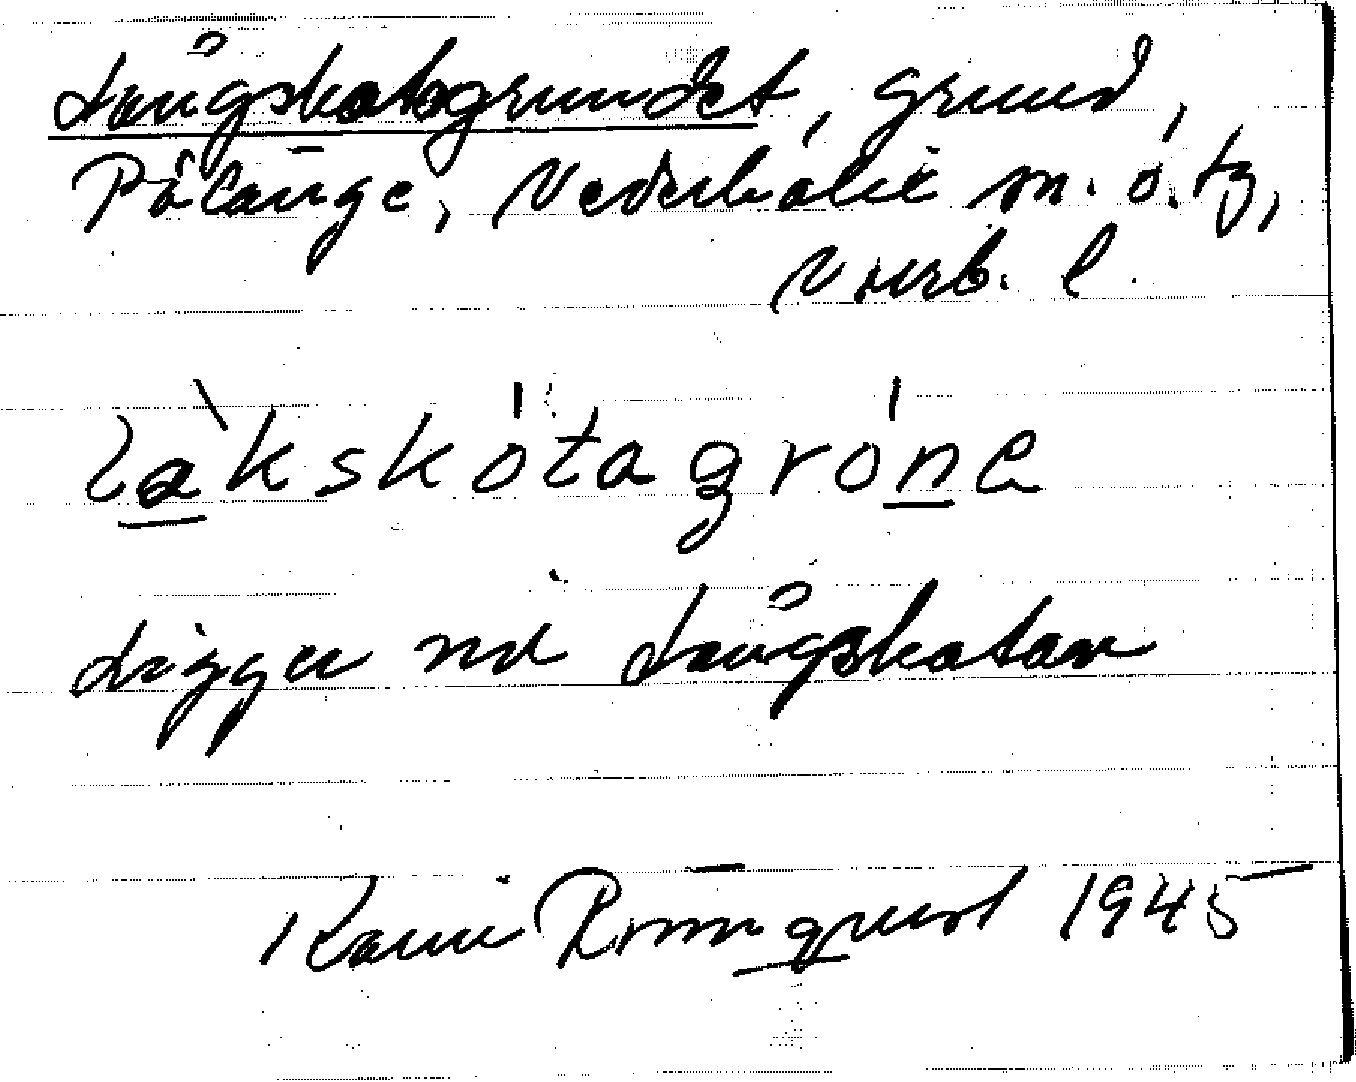 Långskatagrundet, grund,
Pålänge, Nederkalix sn. o. tg,
Norrb. l.
làkskótagróne
Ligger vid Långskatan
Karin Rönnqvist 1945